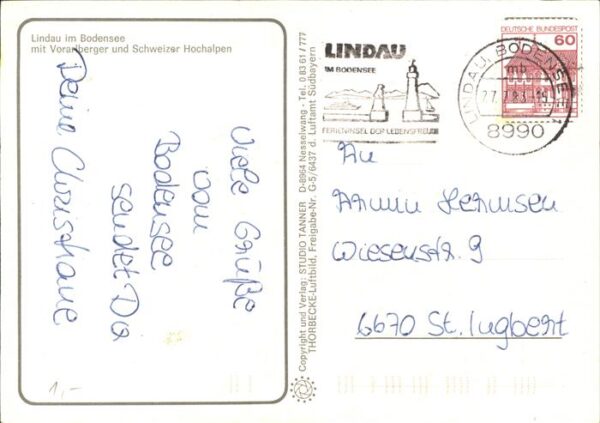 Lindau im Bodensee
mit Vorarlberger und Schweizer Hochalpen
Viele Grüße
vom
Bodensee
sendet Dir
Deine Christiane
1,-
Copyright und Verlag: STUDIO TANNER D-8964 Nesselwang - Tel. 0 83 61 / 777
THORBECKE-Luftbild, Freigabe-Nr. G-5/6437 d. Luftamt Südbayern
LINDAU
IM BODENSEE
FERIENINSEL DER LEBENSFREUDE
LINDAU, BODENSEE
mb
27.7.83
8990
DEUTSCHE BUNDESPOST
60
An
Armin Hermsen
Wiesenstr. 9
6670 St. Ingbert